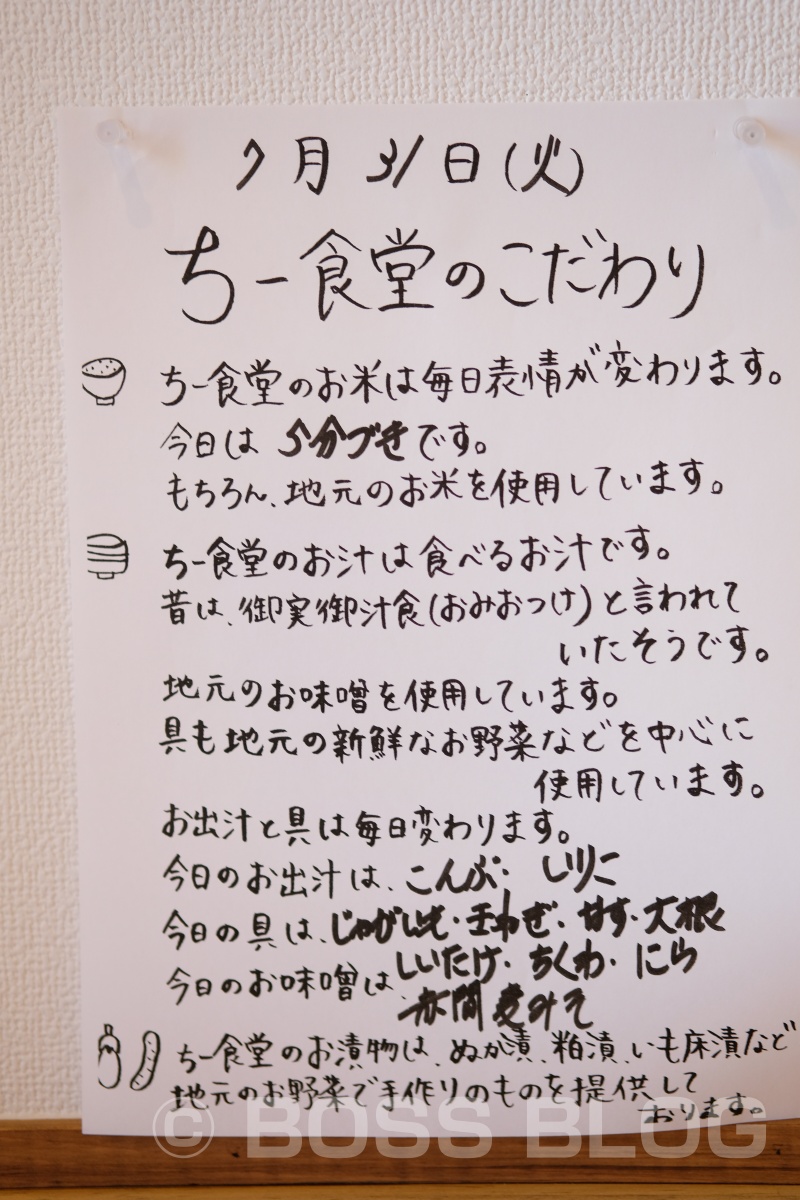 7月31日(火)
ちー食堂のこだわり
ちー食堂のお米は毎日表情が変わります。
今日は 5分づきです。
もちろん、地元のお米を使用しています。
ちー食堂のお汁は食べるお汁です。
昔は、御実御汁食(おみおつけ)と言われて
いたそうです。
地元のお味噌を使用しています。
具も地元の新鮮なお野菜などを中心に
使用しています。
お出汁と具は毎日変わります。
今日のお出汁は、こんぶ・いりこ
今日の具は、じゃがいも・玉ねぎ・なす・大根
しいたけ・ちくわ・にら
今日のお味噌は、
みそ
ちー食堂のお漬物は、ぬか漬、粕漬、いも床漬など
地元のお野菜で手作りのものを提供して
おります。
© BOSS BLOG